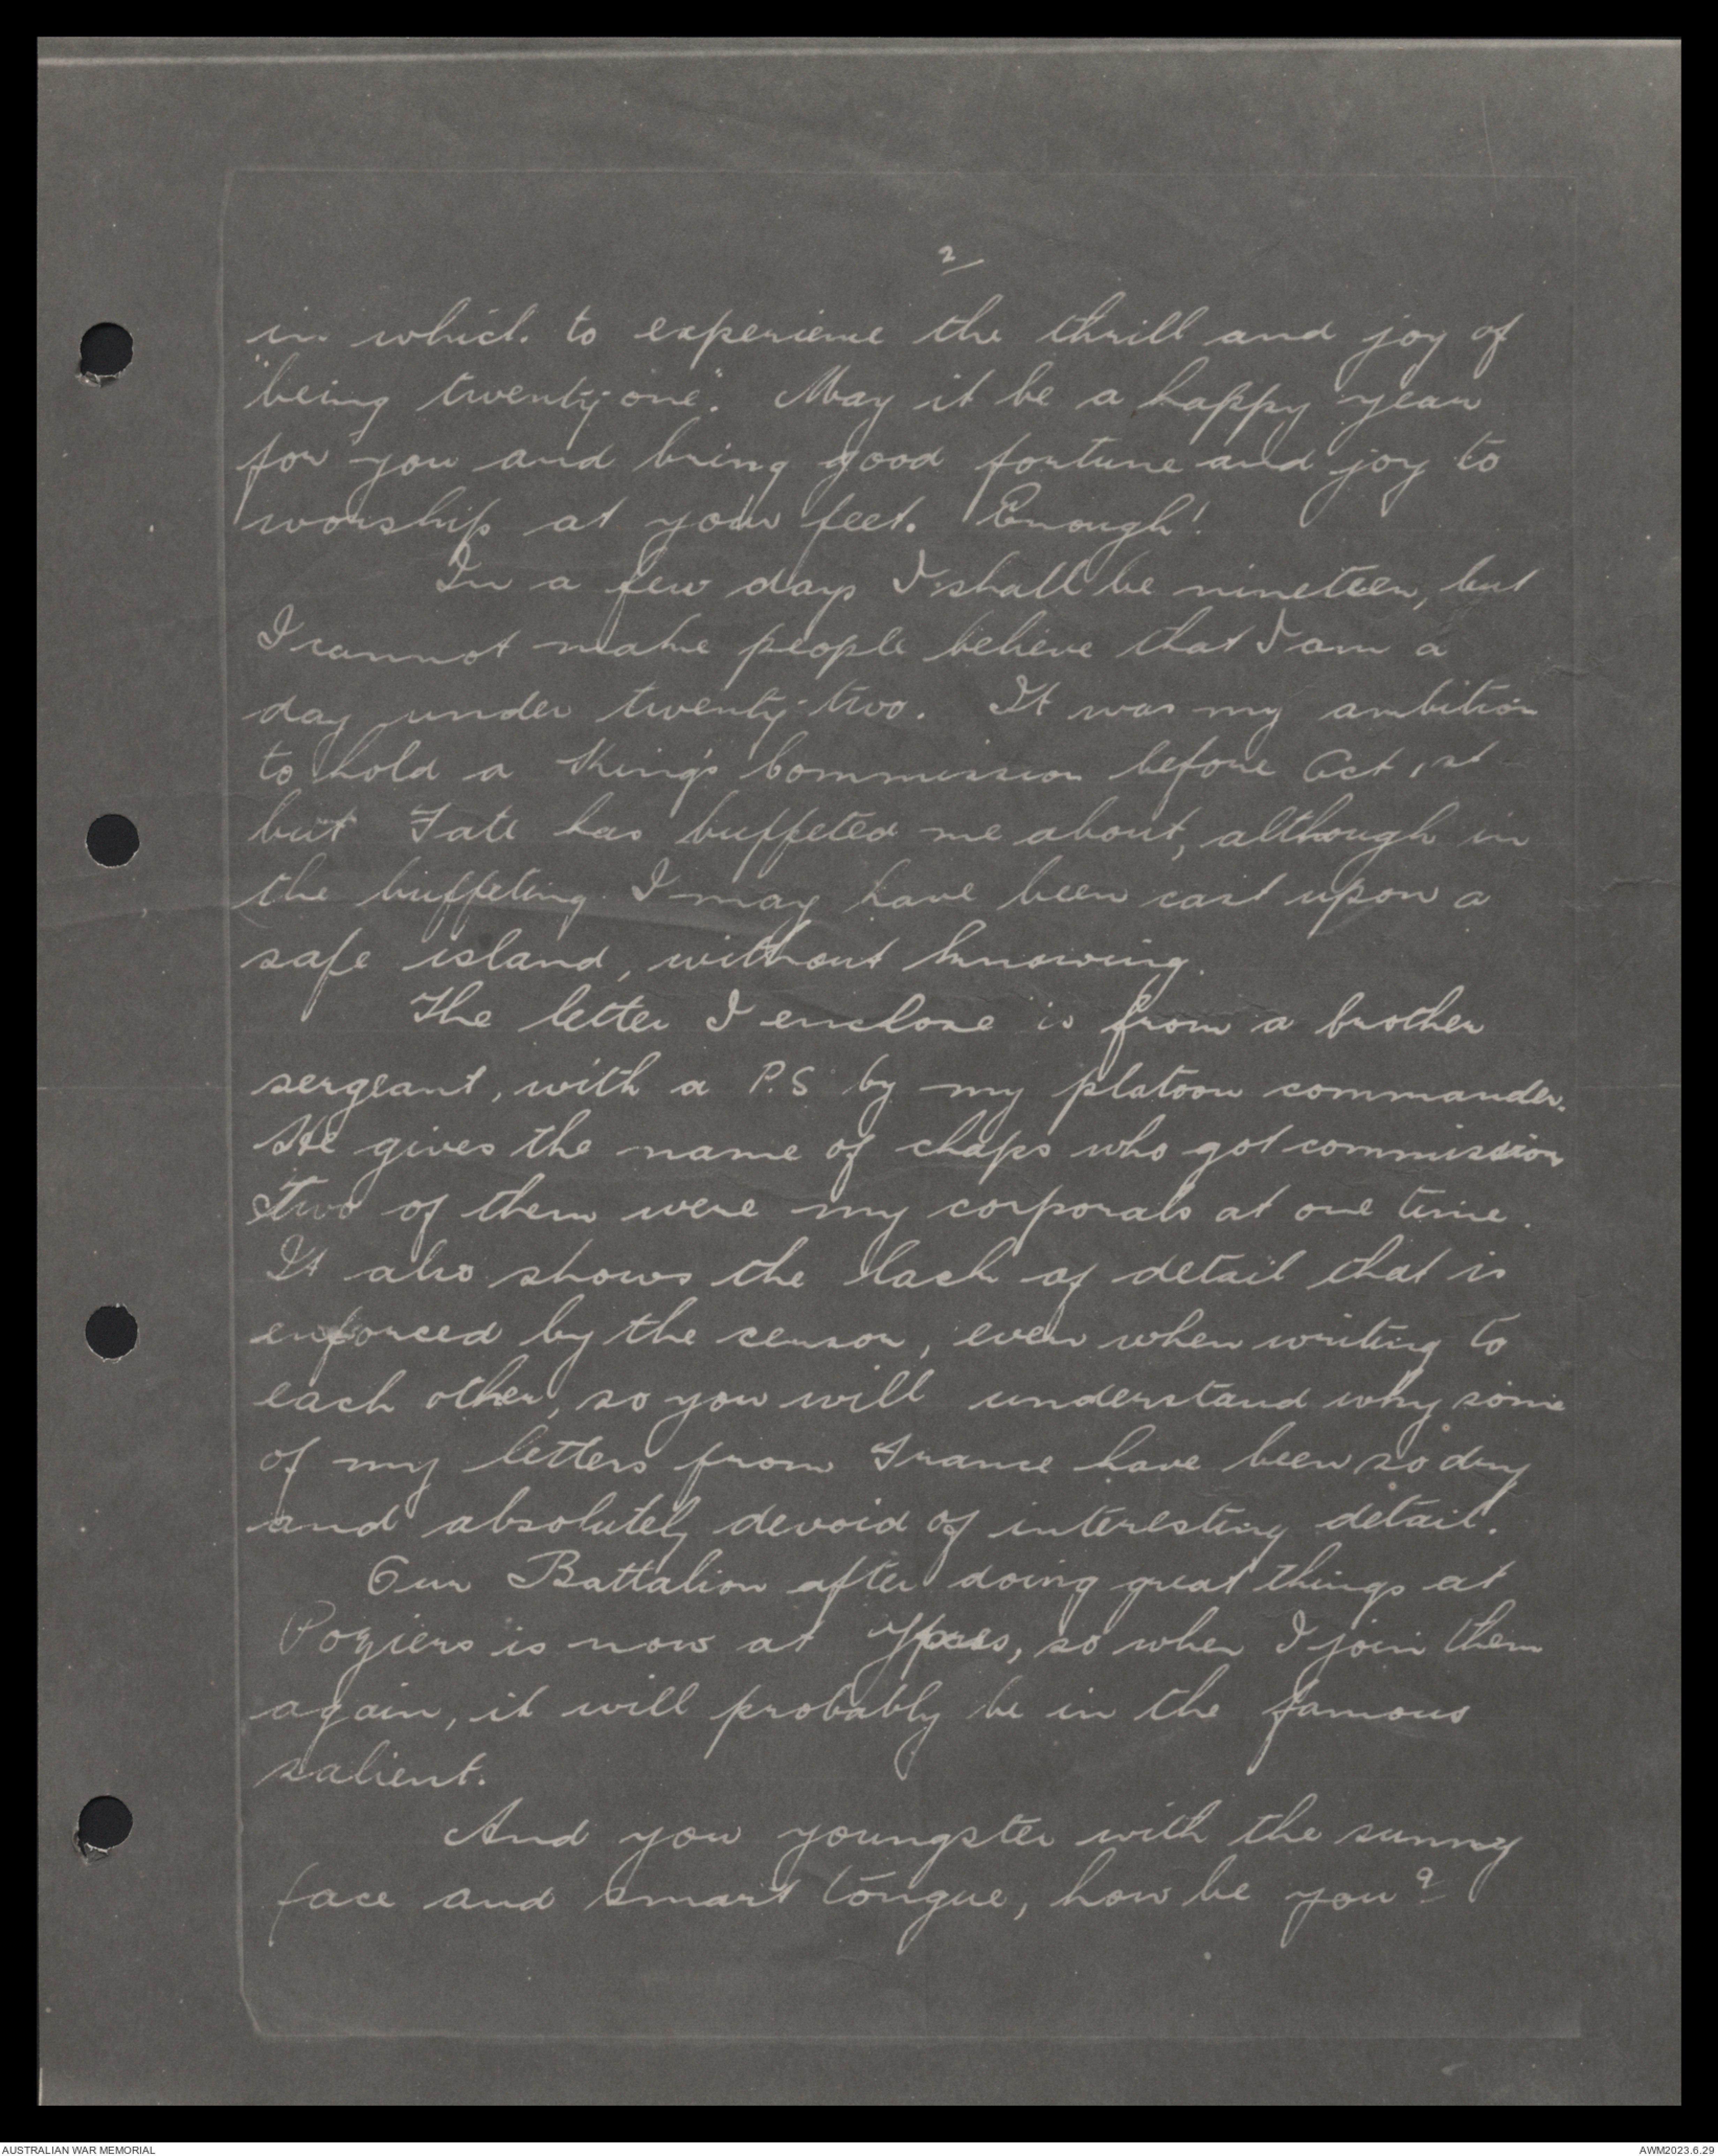 2
in which to experience the thrill and joy of
"being twenty-one". May it be a happy year
for you and bring good fortune and joy to
worship at your feet. Enough!
In a few days I shall be nineteen, but
I cannot make people believe that I am a
day under twenty-two. It was my ambition
to hold a King's Commission before Oct 1st
but Fate has buffeted me about, although in
the buffeting I may have been cast upon a
safe island, without knowing.
The letter I enclose is from a brother
sergeant, with a P.S by my platoon commander.
He gives the name of chaps who got commission
two of them were my corporals at one time.
It also shows the lack of detail that is
enforced by the censor, even when writing to
each other, so you will understand why some
of my letters from France have been so dry
and absolutely devoid of interesting detail.
Our Battalion after doing great things at
Poziers is now at Ypres, so when I join them
again, it will probably be in the famous
salient.
And you youngster with the sunny
face and smart tongue, how be you?
AUSTRALIAN WAR MEMORIAL
AWM2023.6.29